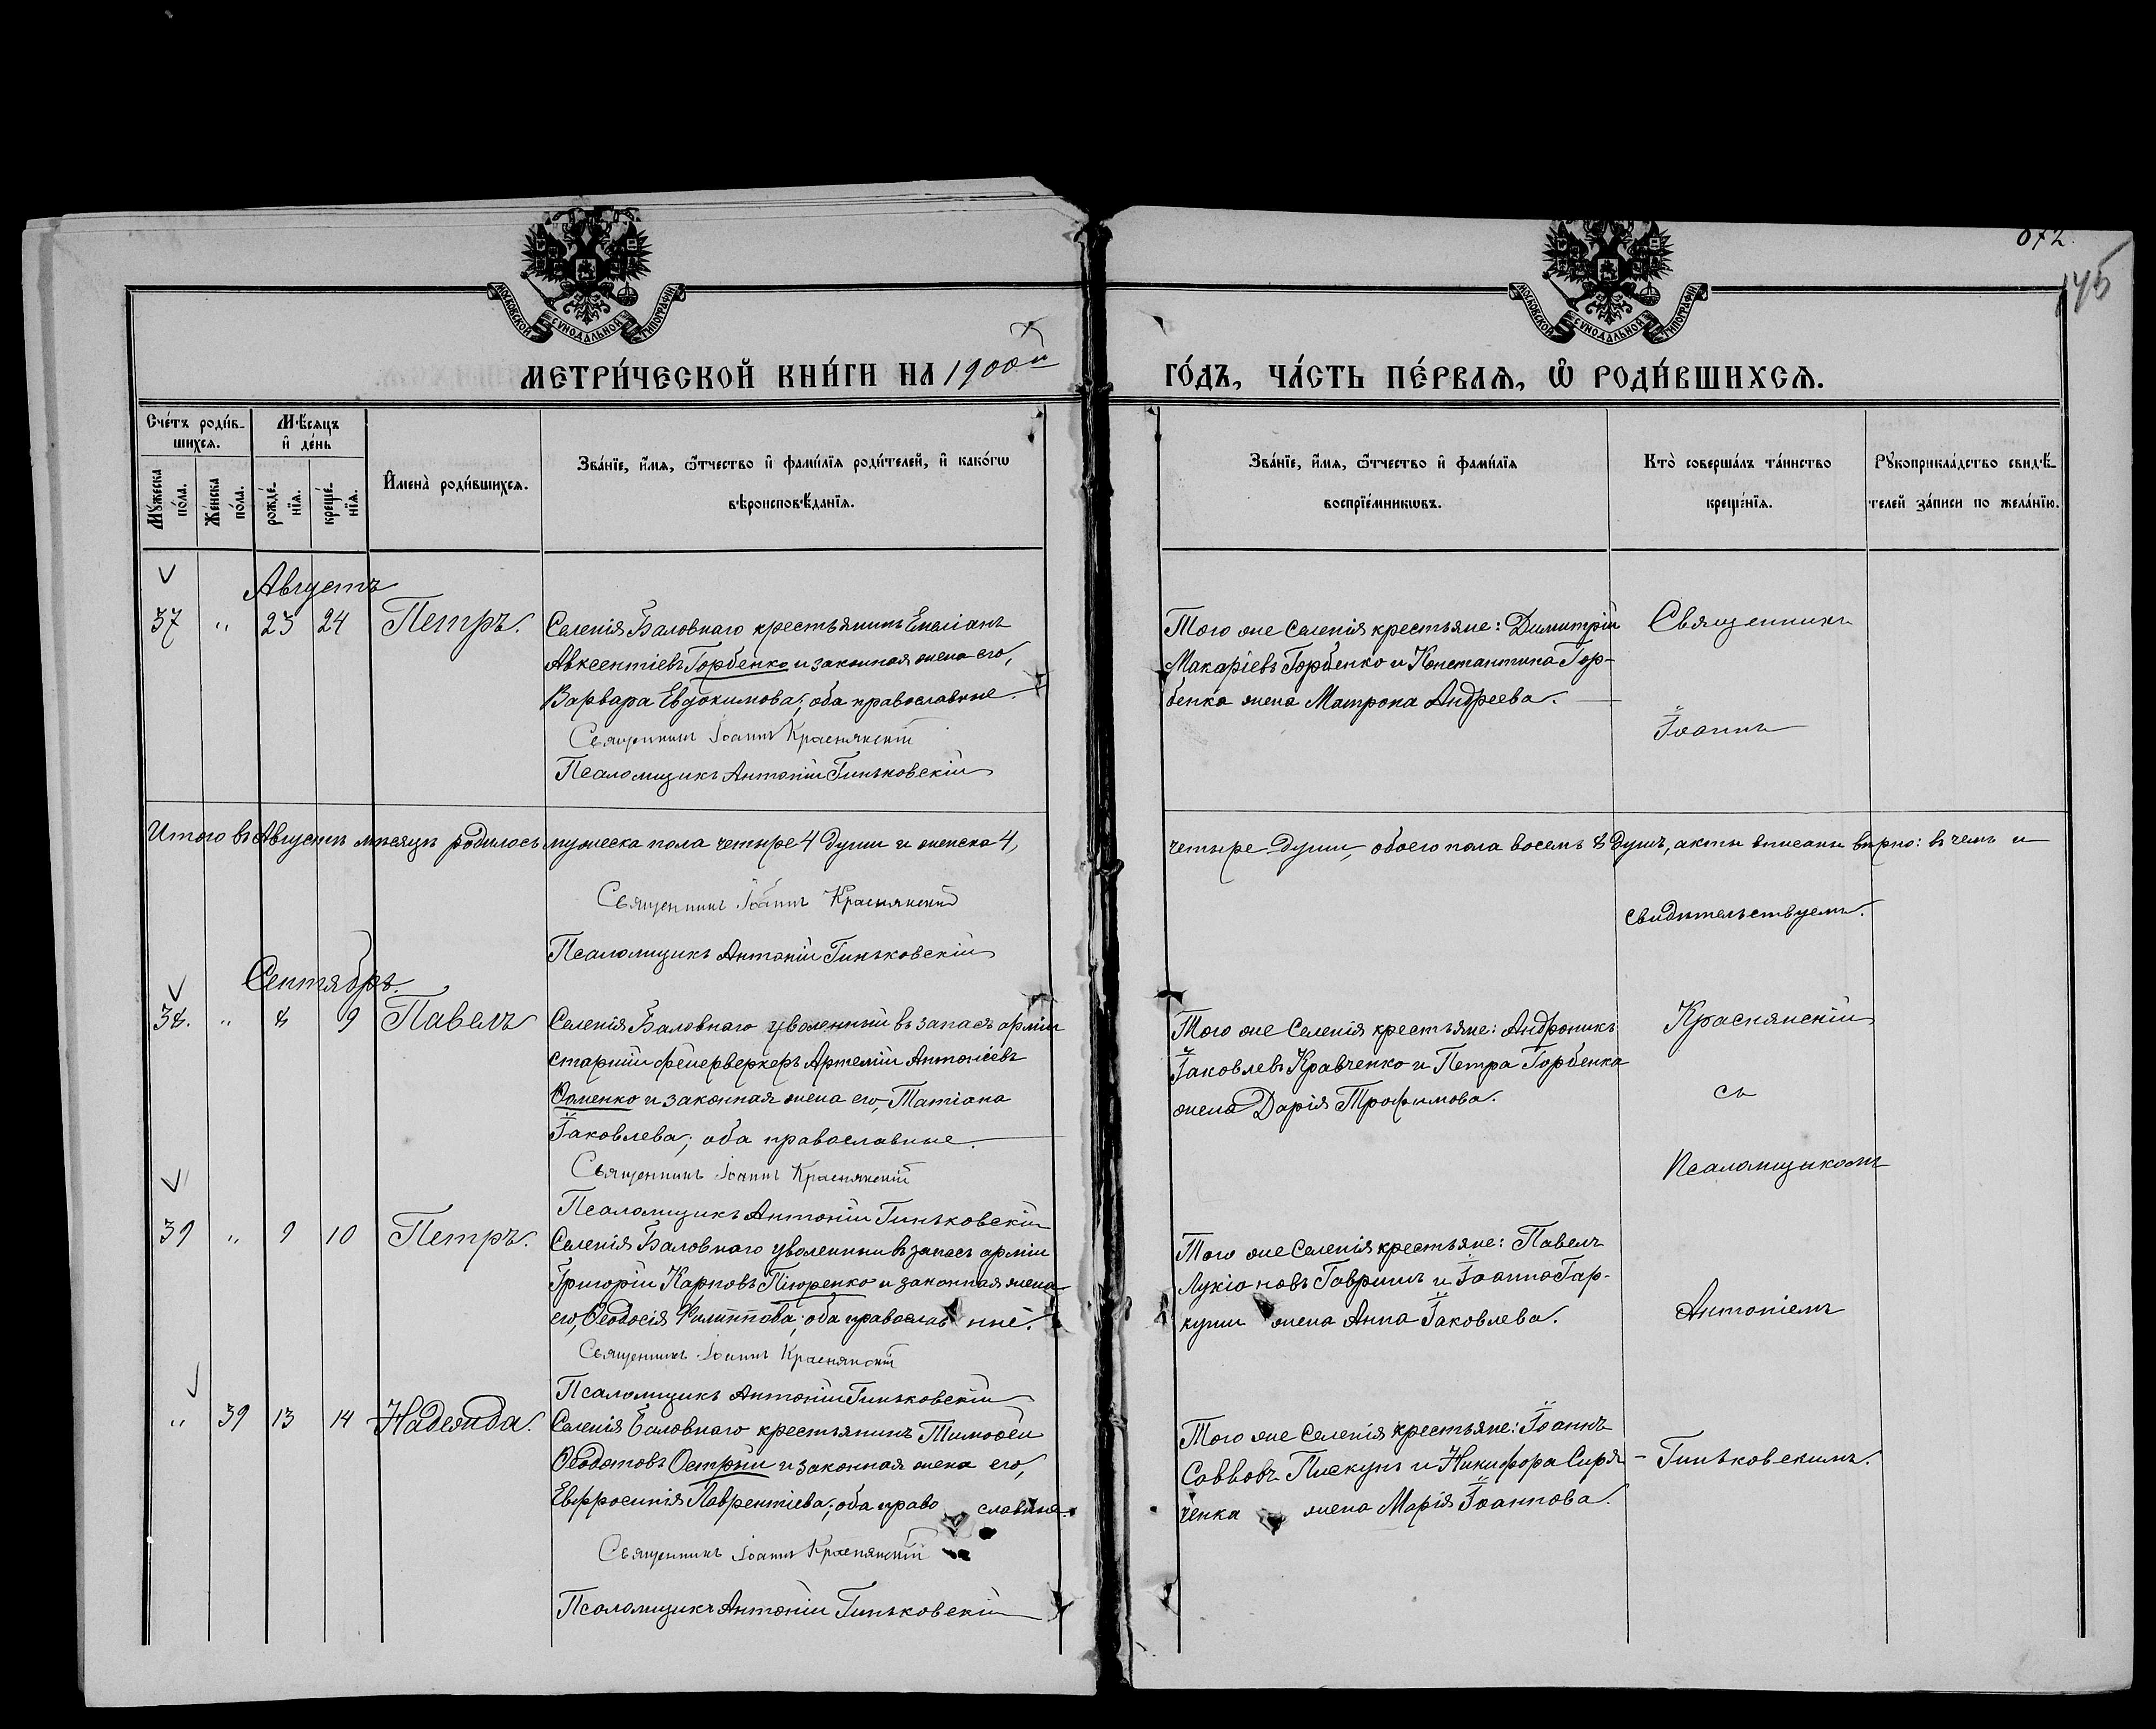 072.
145
МОСКОВСКОЙ СѴНОДАЛЬНОЙ ТИПОГРАФІИ
МОСКОВСКОЙ СѴНОДАЛЬНОЙ ТИПОГРАФІИ
МЕТРИ́ЧЕСКОЙ КНИ́ГИ НА 1900й
ГО́ДЪ, ЧА́СТЬ ПЕ́РВАѦ, Ѡ҆ РОДИ́ВШИХСѦ.
Сче́тъ роди́в-
шихсѧ.
Мꙋ́жеска по́ла.
Же́нска по́ла.
Мѣ́сѧцъ
и҆ де́нь
рожде́-
нїѧ.
креще́-
нїѧ.
И҆мена̀ роди́вшихсѧ.
Зва́нїе, и҆́мѧ, ѻ҆́тчество и҆ фамѝлїѧ роди́телей, и҆ како́гѡ
вѣроисповѣ́данїѧ.
Зва́нїе, и҆́мѧ, ѻ҆́тчество и҆ фамѝлїѧ
воспрїе́мникѡвъ.
Кто̀ соверша́лъ та́инство
креще́нїѧ.
Рꙋкоприкла́дство свидѣ́-
телей за́писи по жела́нїю.
Августъ
37 " 23 24 Петръ.
Селенія Баловнаго крестьянинъ Емеліанъ
Авксентіевъ Горбенко и законная жена его,
Варвара Евдокимова; оба православные.
Священникъ Іоаннъ Краснянскій
Псаломщикъ Антоній Гиньковскій
Того же селенія крестьяне: Димитрій
Макаріевъ Горбенко и Константина Гор-
бенка жена Матрона Андреева.
Священникъ
Іоаннъ
Итого въ Августѣ мѣсяцѣ родилось мужеска пола четыре 4 души и женска 4,
четыре души, обоего пола восемь 8 душъ, акты вписаны вѣрно: въ чемъ и
свидѣтельствуемъ.
Священникъ Іоаннъ Краснянскій
Псаломщикъ Антоній Гиньковскій
Сентябрь.
38. " 8 9 Павелъ
Селенія Баловнаго уволенный въ запасъ арміи
старшій фейерверкеръ Артемій Антоніевъ
Ѳоменко и законная жена его, Татіана
Іаковлева; оба православные.
Священникъ Іоаннъ Краснянскій
Псаломщикъ Антоній Гиньковскій
Того же селенія крестьяне: Андроникъ
Іаковлевъ Кравченко и Петра Горбенка
жена Дарія Трофимова.
Краснянскій
съ
Псаломщикомъ
39 " 9 10 Петръ.
Селенія Баловнаго уволенный въ запасъ арміи
Григорій Карповъ Пюренко и законная жена
его, Ѳеодосія Филиппова; оба православ ные.
Священникъ Іоаннъ Краснянскій
Псаломщикъ Антоній Гиньковскій
Того же селенія крестьяне: Павелъ
Лукіановъ Гавришъ и Іоанна Гар-
куши жена Анна Іаковлева.
Антоніемъ
" 39 13 14 Надежда.
Селенія Баловнаго крестьянинъ Тимоѳей
Ѳеодотовъ Острый и законная жена его,
Евфросинія Лаврентіева; оба право славные.
Священникъ Іоаннъ Краснянскій
Псаломщикъ Антоній Гиньковскій
Того же селенія крестьяне: Іоаннъ
Саввовъ Пискунъ и Никифора Сиря-
ченка жена Марія Іоаннова.
Гиньковскимъ.